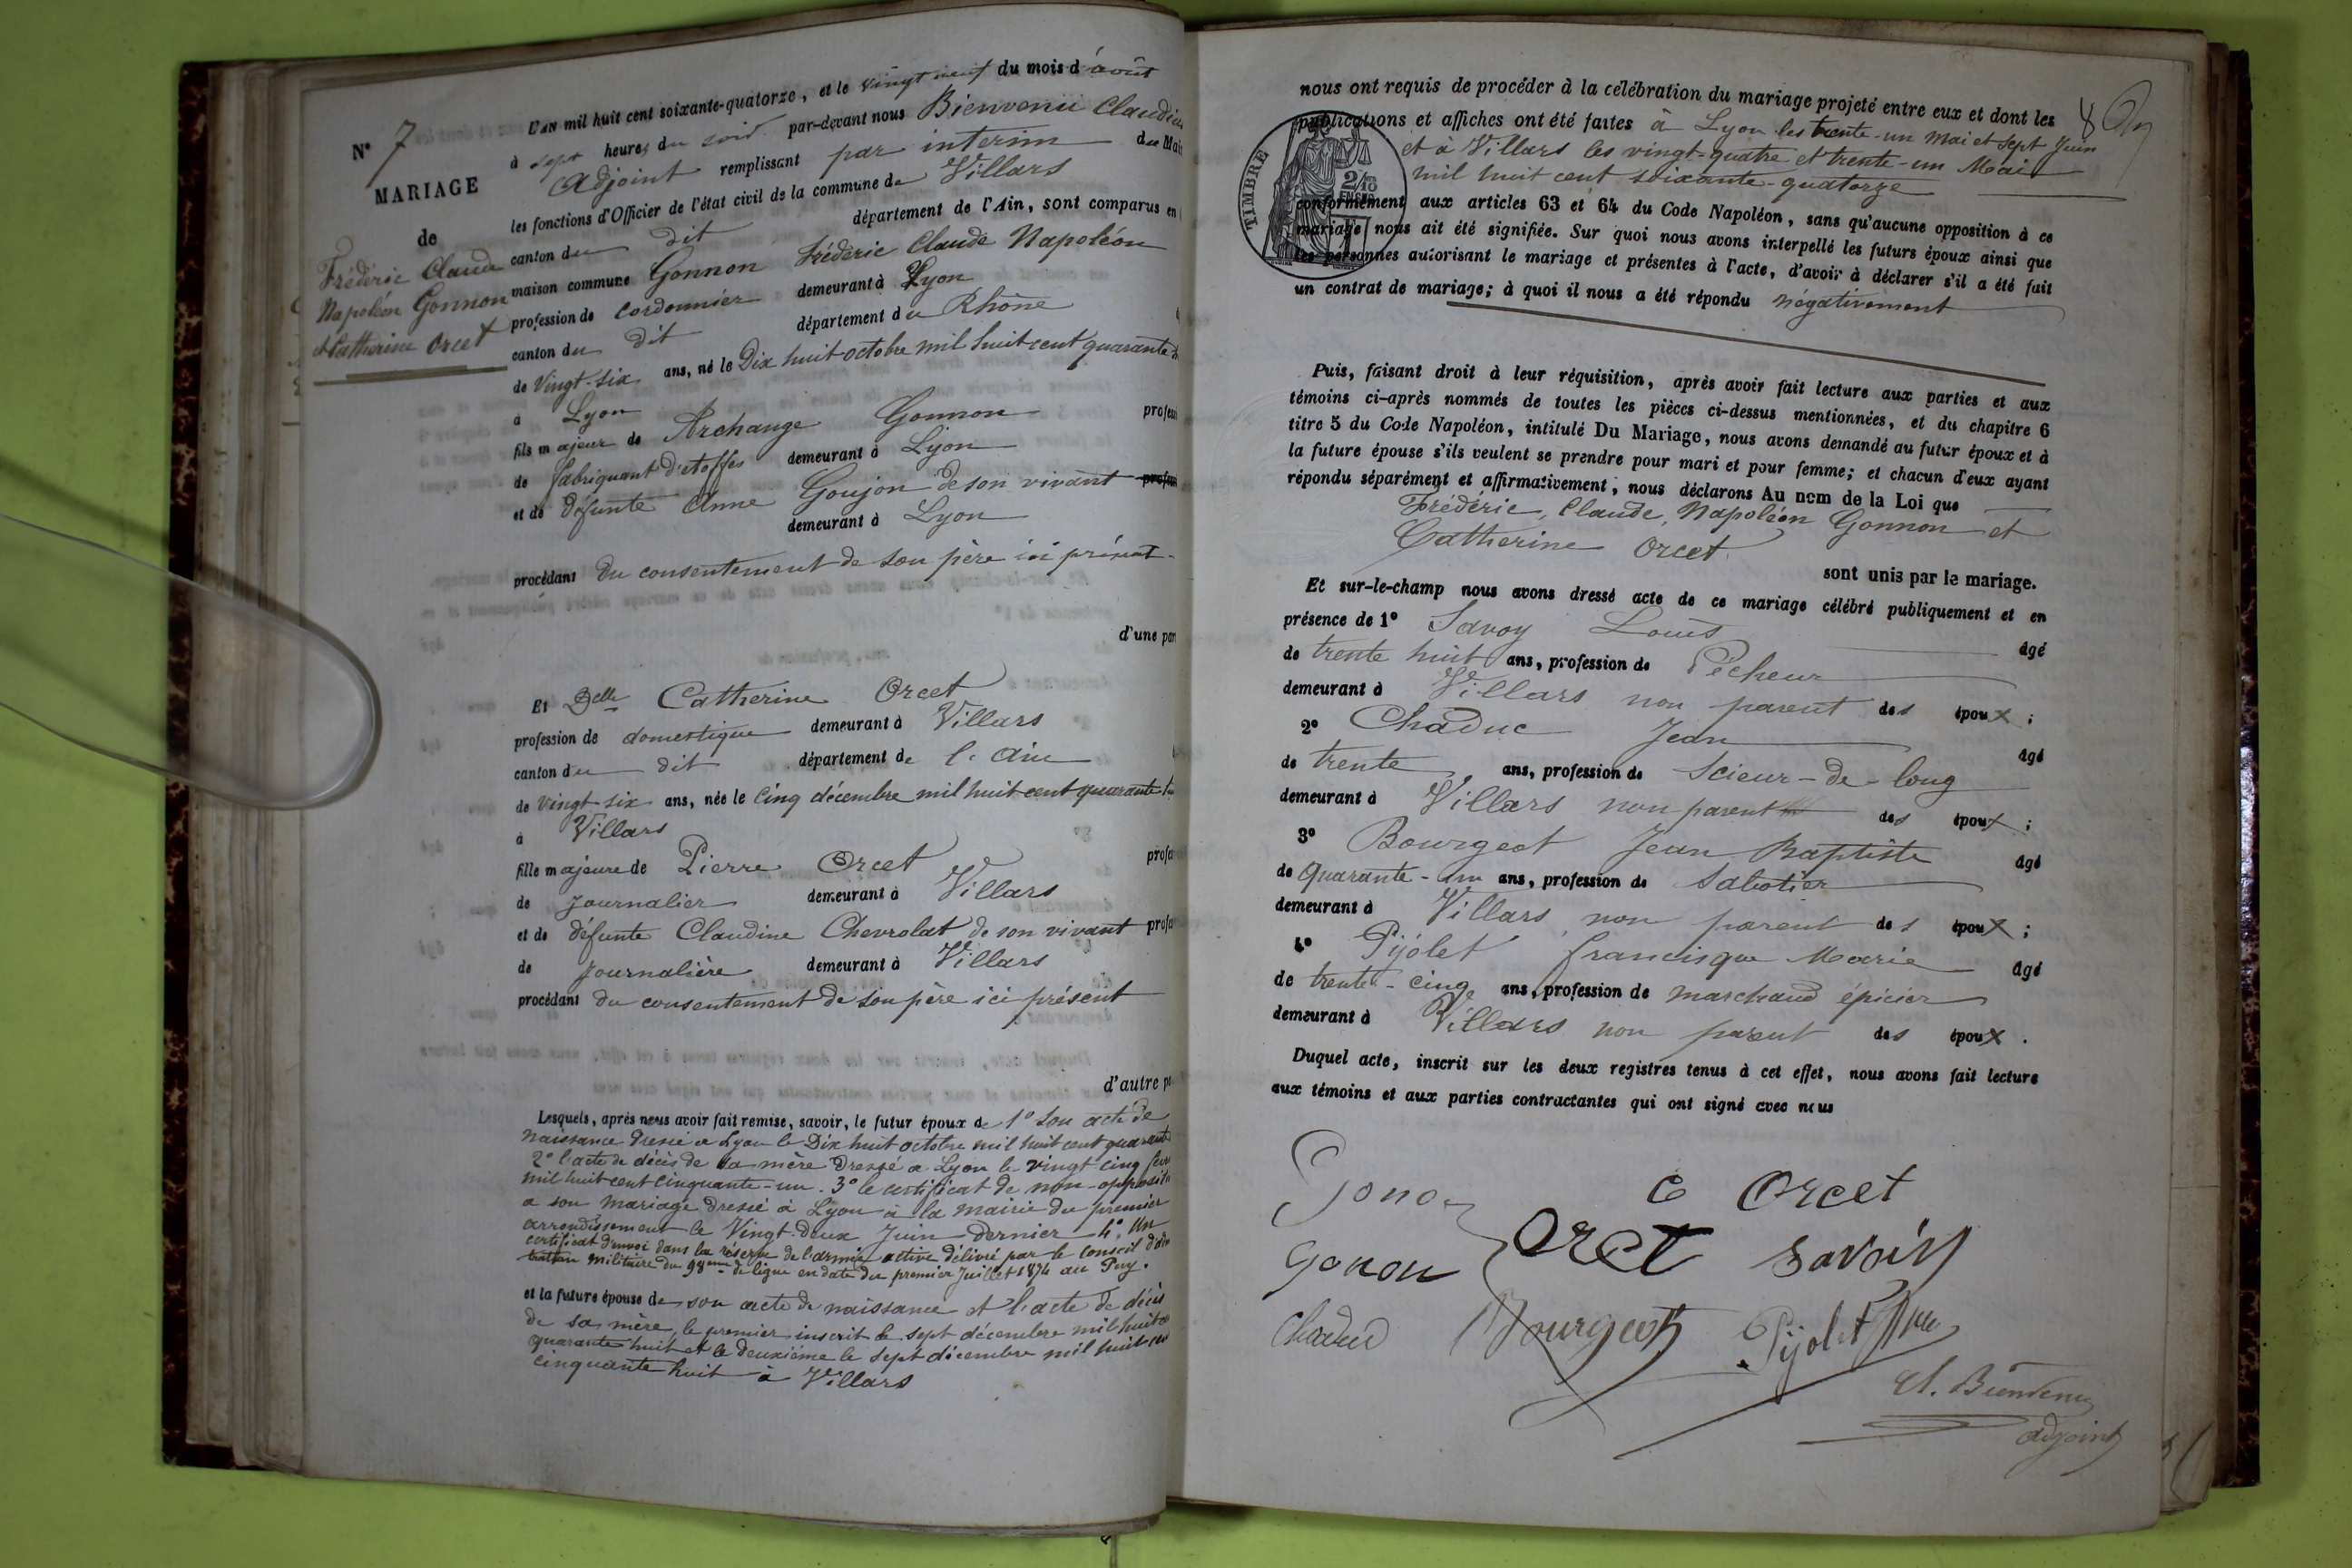 L'AN mil huit cent soixante-quatorze, et le vingt neuf du mois d'août
N° 7
à sept heures du soir par-devant nous Bienvenu Claudius
Adjoint remplissant par interim du Mai
MARIAGE
les fonctions d'Officier de l'état civil de la commune de Villars
de
canton du dit département de l'Ain, sont comparus en
Frédéric Claude
Napoléon Gonnon
et Catherine Orcet
maison commune Gonnon Frédéric Claude Napoléon
profession de cordonnier demeurant à Lyon
canton du dit département du Rhône
de Vingt-six ans, né le Dix huit octobre mil huit cent quarante
à Lyon
fils majeur de Archange Gonnon profess
de fabriquant d'étoffes demeurant à Lyon
et de défunte Anne Goujon de son vivant profes
demeurant à Lyon
procédant du consentement de son père ici présent
d'une par
Et Delle Catherine Orcet
profession de domestique demeurant à Villars
canton du dit département de l'Ain
de vingt-six ans, née le Cinq décembre mil huit cent quarante
à Villars
fille majeure de Pierre Orcet profes
de Journalier demeurant à Villars
et de défunte Claudine Chevrolat de son vivant profes
de Journalière demeurant à Villars
procédant du consentement de son père ici présent
d'autre pa
Lesquels, après nous avoir fait remise, savoir, le futur époux de 1° Son acte de
naissance dressé à Lyon le Dix huit octobre mil huit cent quarante
2° l'acte de décès de sa mère dressé à Lyon le vingt cinq
mil huit cent cinquante-un. 3° le certificat de non-opposition
à son mariage dressé à Lyon à la mairie du premier
arrondissement le Vingt-Deux Juin dernier 4° Un
certificat d'envoi dans la réserve de l'armée active délivré par le conseil d'
militaire du 98eme de ligne en date du premier Juillet 1874 au Puy.
et la future épouse de son acte de naissance et l'acte de décès
de sa mère, le premier inscrit le sept décembre mil huit
quarante huit et le deuxième le sept décembre mil huit cent
cinquante huit à Villars
nous ont requis de procéder à la célébration du mariage projeté entre eux et dont les
publications et affiches ont été faites à Lyon les trente-un Mai et sept Juin
et à Villars les vingt-quatre et trente-un Mai
mil huit cent soixante-quatorze
8
TIMBRE
2/10
EN SUS
conformément aux articles 63 et 64 du Code Napoléon, sans qu'aucune opposition à ce
mariage nous ait été signifiée. Sur quoi nous avons interpellé les futurs époux ainsi que
les personnes autorisant le mariage et présentes à l'acte, d'avoir à déclarer s'il a été fait
un contrat de mariage; à quoi il nous a été répondu négativement
Puis, faisant droit à leur réquisition, après avoir fait lecture aux parties et aux
témoins ci-après nommés de toutes les pièces ci-dessus mentionnées, et du chapitre 6
titre 5 du Code Napoléon, intitulé Du Mariage, nous avons demandé au futur époux et à
la future épouse s'ils veulent se prendre pour mari et pour femme; et chacun d'eux ayant
répondu séparément et affirmativement, nous déclarons Au nom de la Loi que
Frédéric, Claude, Napoléon Gonnon et
Catherine Orcet
sont unis par le mariage.
Et sur-le-champ nous avons dressé acte de ce mariage célébré publiquement et en
présence de 1° Savoy Louis âgé
de trente huit ans, profession de Pêcheur
demeurant à Villars non parent des époux ;
2° Chaduc Jean âgé
de trente ans, profession de Scieur-de-long
demeurant à Villars non parent des époux ;
3° Bourgeot Jean Baptiste âgé
de Quarante-un ans, profession de Sabotier
demeurant à Villars non parent des époux ;
4° Pijolet francisque Marie âgé
de trente-cinq ans, profession de marchand épicier
demeurant à Villars non parent des époux .
Duquel acte, inscrit sur les deux registres tenus à cet effet, nous avons fait lecture
aux témoins et aux parties contractantes qui ont signé avec nous
Gonon C Orcet
Gonon Orcet Savoiy
Chaduc Bourgeot Pijolet
Cl. Bienvenu
adjoint